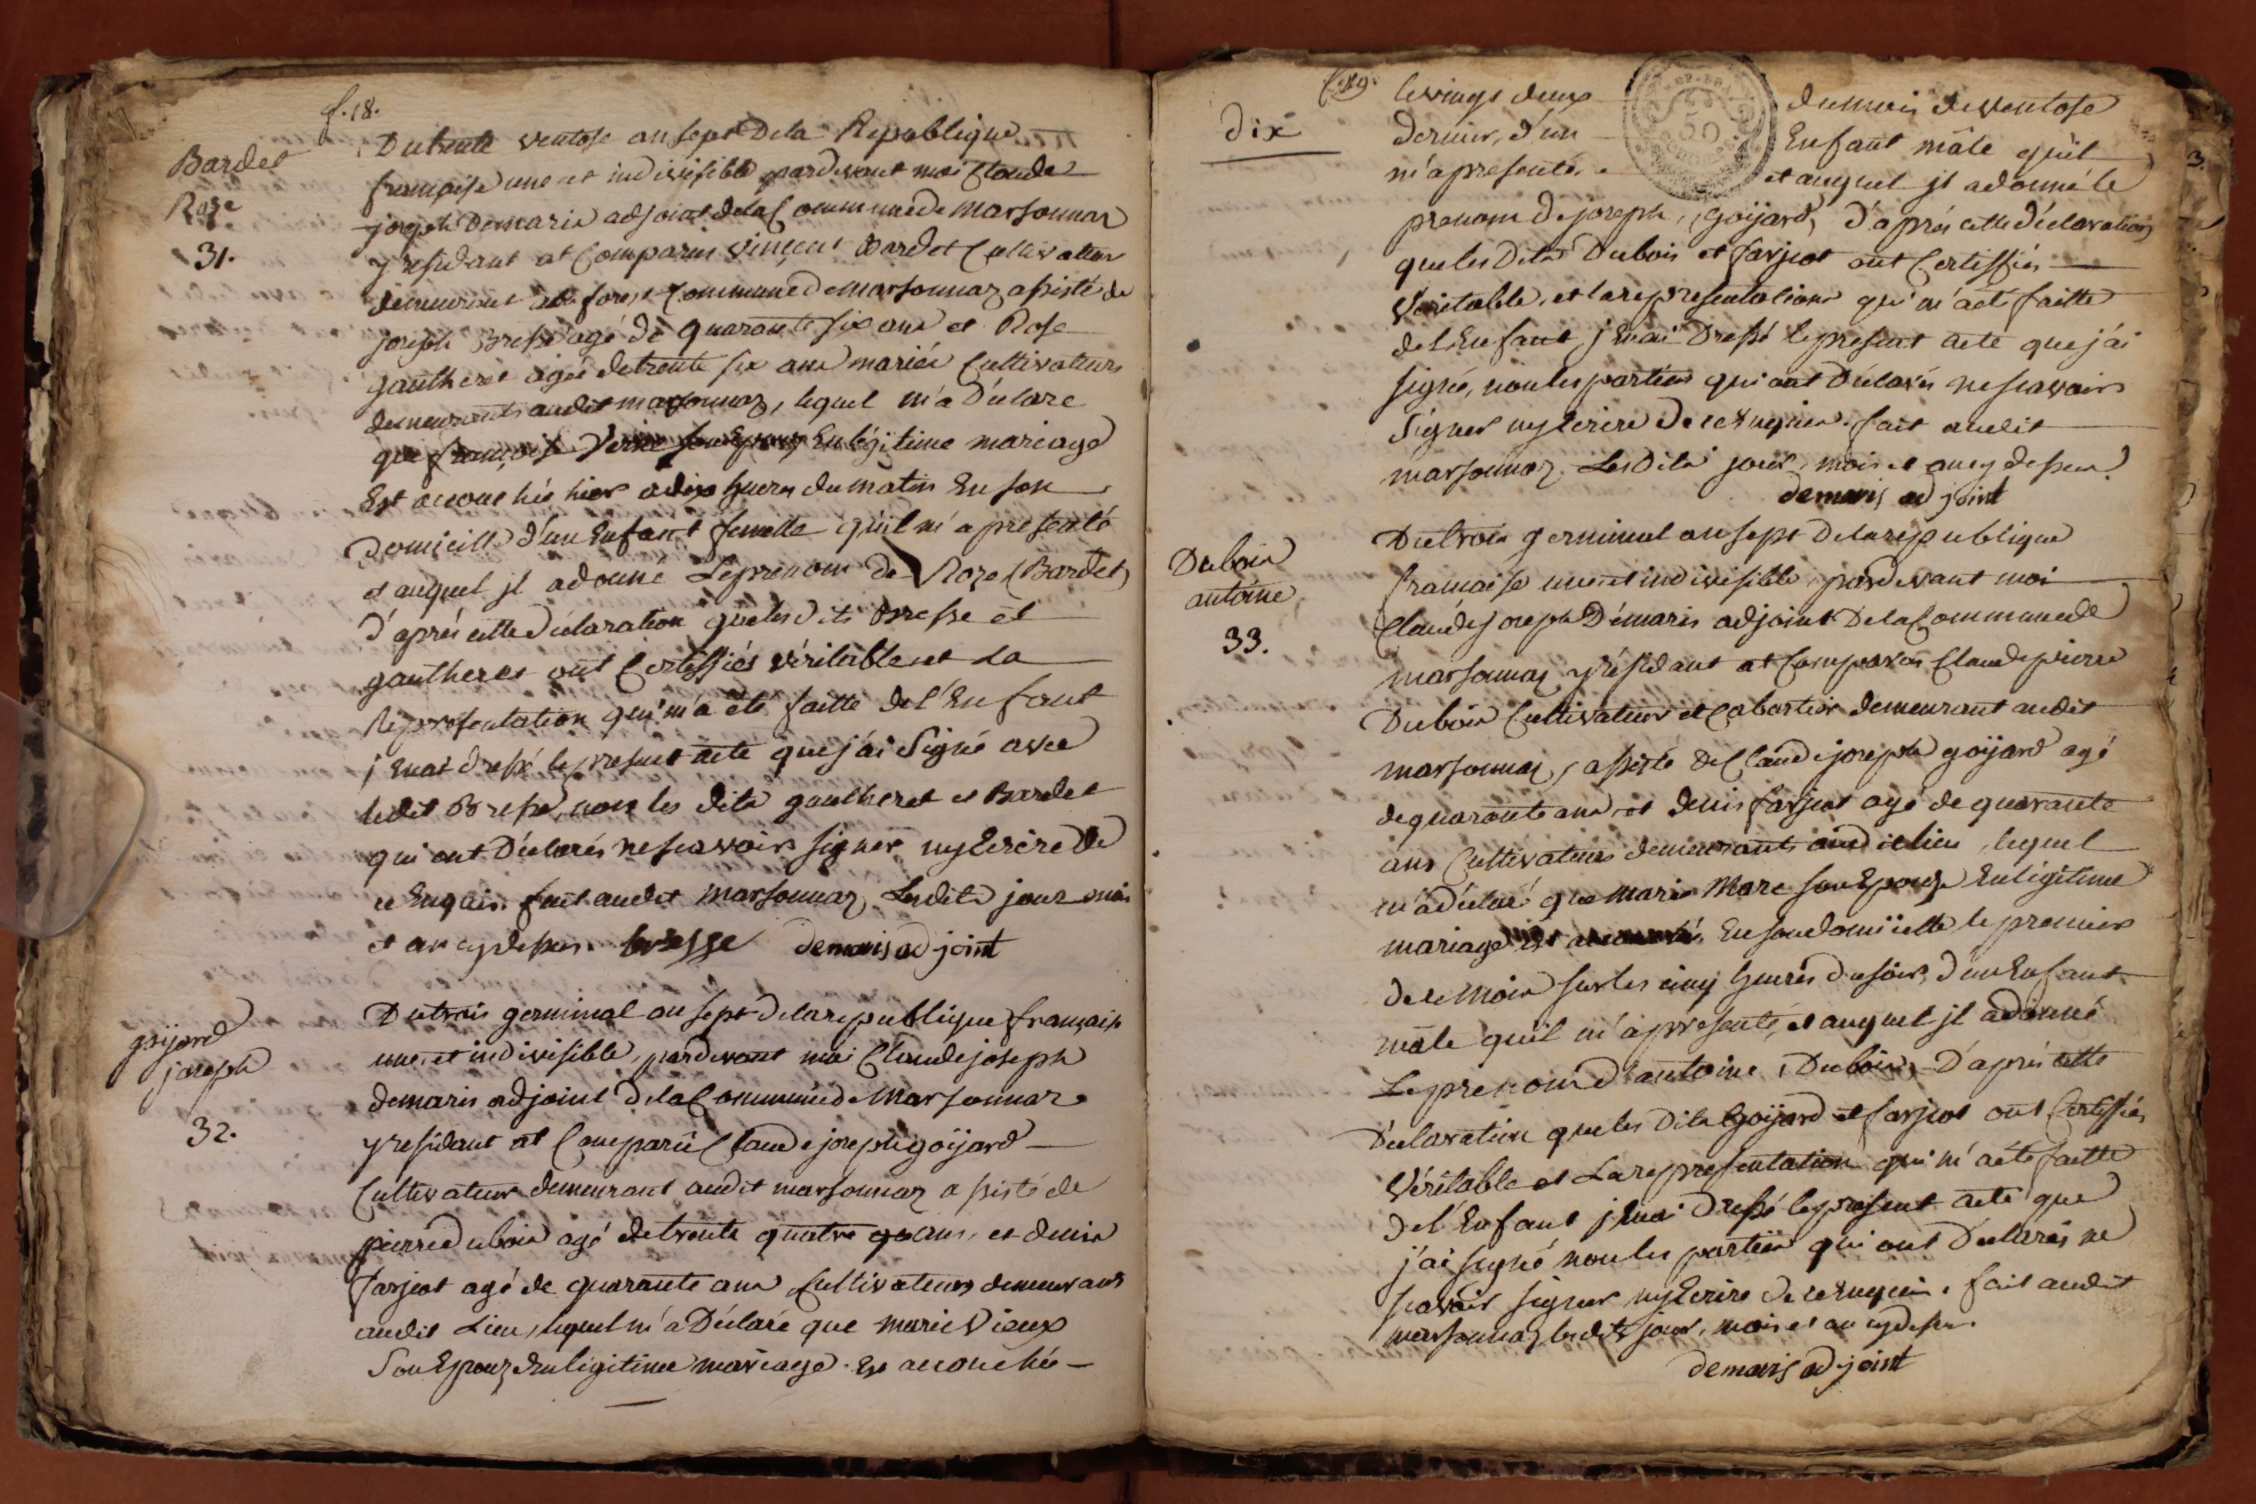 f. 18.
Bardet
Roze
31.
Du trente ventose an sept De la Republique
française une et indivisible pardevant moi Claude
joseph Demaris adjoint de la Commune de Marsonnaz
y residant at Comparus vincent Bardet Cultivateur
demeurant a la forest Commune de marsonnaz assisté de
joseph Bresse agé de quarante six ans et Rose
gautheret agée de trente six ans mariés Cultivateurs
demeurants audit marsonnaz, lequel m'a Déclaré
que françoise son Epouze En légitime mariage
Est accouchée hier a dix heures du matin En son
Domicille d'un Enfant femelle qu'il m'a presenté
et auquel il a donné Le prenom de Roze (Bardet)
D'aprés cette Déclaration que les dits Bresse et
gautheret ont Certiffiés véritable et La
Representation qui m'a été faitte de l'Enfant
j'Enai dressé le present acte que j'ai Signé avec
ledit Bresse, non les dits gautheret et Bardet
qui ont Déclarés ne scavoir signer ny Ecrire De
ce Enquis. fait audit Marsonnaz Lesdits jour mois
et an cy dessus. bresse demaris adjoint
goijard
joseph
32.
Du trois germinal an sept de la republique française
une et indivisible, pardevant moi Claude joseph
demaris adjoint De la Commune de Marsonnaz
y residant at Comparu Claude joseph goijard
Cultivateur demeurant audit marsonnaz assisté de
pierre dubois agé de trente quatre ans, et denis
farjeot agé de quarante ans Cultivateurs demeurants
audit Lieu, lequel m'a Déclaré que marie Vieux
Son Epouze En légitime mariage. Est accouchée
f. 19.
Dix
le vingt deux du mois de ventose
dernier, d'un Enfant mâle qu'il
m'a presenté. et auquel il a donné le
prenom de joseph, (goijard), D'aprés cette Déclaration
que les Dits Dubois et farjeot ont Certiffiés
Veritable, et la representation qui m'a eté faitte
de l'Enfant j'Enai Dressé le present acte que j'ai
signé, non les parties qui ont Déclarés ne scavoir
Signer ny Ecrire De ce Enquis. fait audit
marsonnaz Les Dits jour, mois et an cy dessus
demaris adjoint
Dubois
antoine
33.
Du trois germinal an sept De la republique
française une et indivisible, pardevant moi
Claude joseph Démaris adjoint De la Commune de
marsonnaz y résidant at Comparu Claude pierre
Dubois Cultivateur et Cabartier demeurant audit
marsonnaz, assisté de Claude joseph goijard agé
de quarante ans et denis farjeot agé de quarante
ans Cultivateurs demeurants audit lieu, lequel
m'a déclaré que marie Marc son Epouze En légitime
mariage est accouchée En son domicille le premier
de ce mois sur les cinq heures du soir, d'un Enfant
mâle qu'il m'a présenté, et auquel il a donné
Le prenom d'antoine, Dubois, D'après cette
Déclaration que les Dits goijard et farjeot ont Certiffiés
Véritable et La representation qui m'a été faitte
de l'Enfant j'Enai Dressé le present acte que
j'ai signé non les parties qui ont Déclarés ne
scavoir signer, ny Ecrire De ce Enquis. fait audit
marsonnaz lesdits jour, mois et an cy dessus.
demaris adjoint